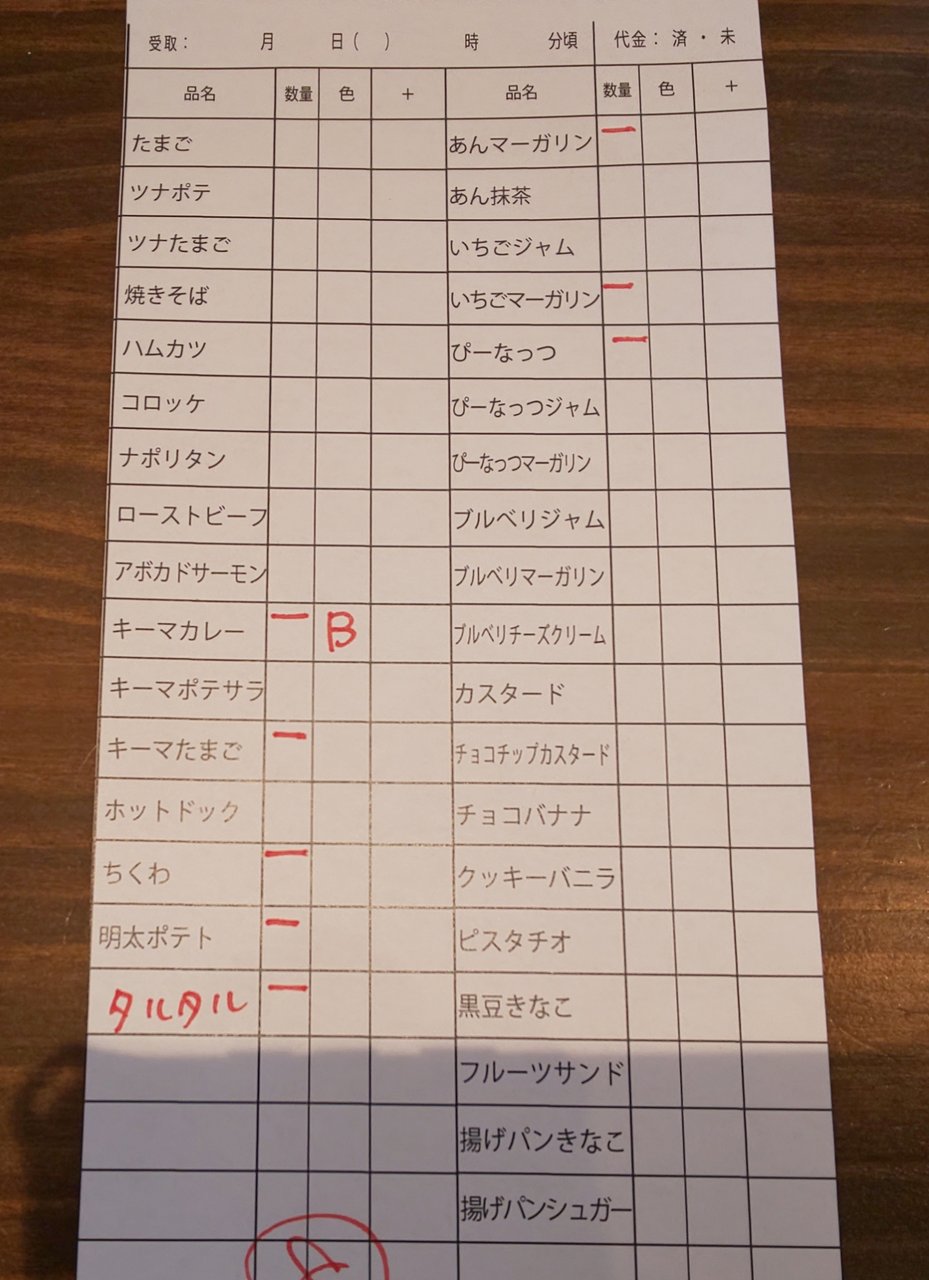 受取： 月 日（ ） 時 分頃 代金： 済 ・ 未
品名 数量 色 ＋ 品名 数量 色 ＋
たまご あんマーガリン 一
ツナポテ あん抹茶
ツナたまご いちごジャム
焼きそば いちごマーガリン 一
ハムカツ ぴーなっつ 一
コロッケ ぴーなっつジャム
ナポリタン ぴーなっつマーガリン
ローストビーフ ブルベリジャム
アボカドサーモン ブルベリマーガリン
キーマカレー 一 B ブルベリチーズクリーム
キーマポテサラ カスタード
キーマたまご 一 チョコチップカスタード
ホットドック チョコバナナ
ちくわ 一 クッキーバニラ
明太ポテト 一 ピスタチオ
タルタル 一 黒豆きなこ
フルーツサンド
揚げパンきなこ
揚げパンシュガー